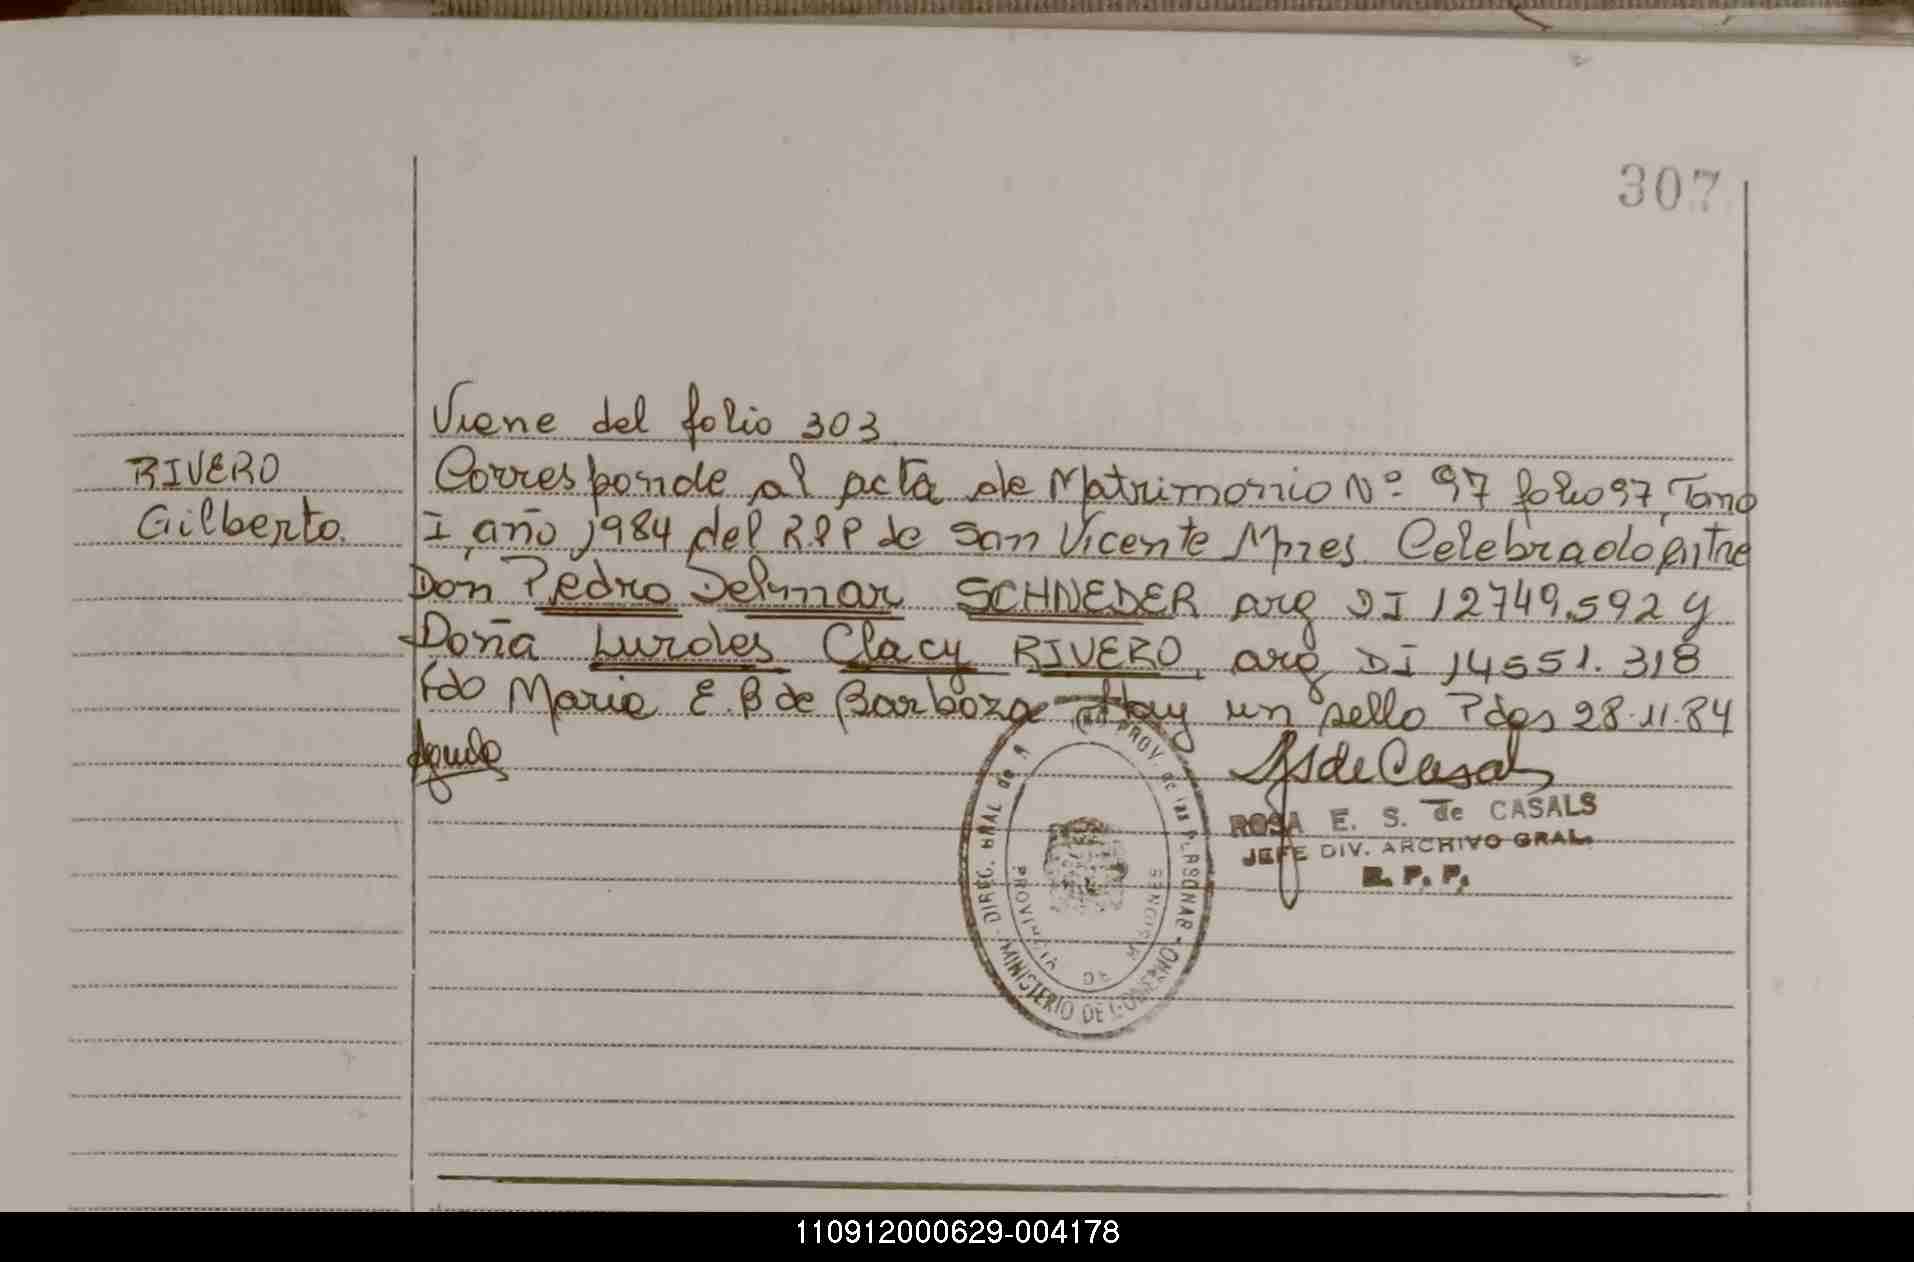 307
Viene del folio 303
RIVERO
Gilberto.
Corresponde al acta de Matrimonio Nº 97 folio 97, Tomo
I, año 1984 del R.P.P de San Vicente Mnes. Celebrado entre
Don Pedro Delmar SCHNEDER arg DI 12749.592 y
Doña Lurdes Clacy RIVERO, arg DI 14551.318
Fdo Maria E. B de Barboza Hay un sello Pdas 28.11.84
ROSA E. S. de CASALS
JEFE DIV. ARCHIVO GRAL.
R. P. P.
DIREC. GRAL de PROV. de las PERSONAS - MINISTERIO DE GOBIERNO
PROVINCIA DE MISIONES
110912000629-004178